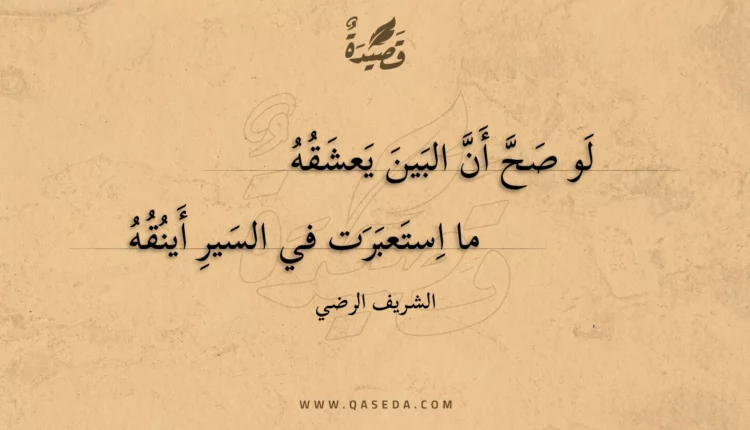 قَصِيْدَةٌ
لَو صَحَّ أَنَّ البَينَ يَعشَقُهُ
ما اِستَعبَرَت في السَيرِ أَينُقُهُ
الشريف الرضي
WWW.QASEDA.COM